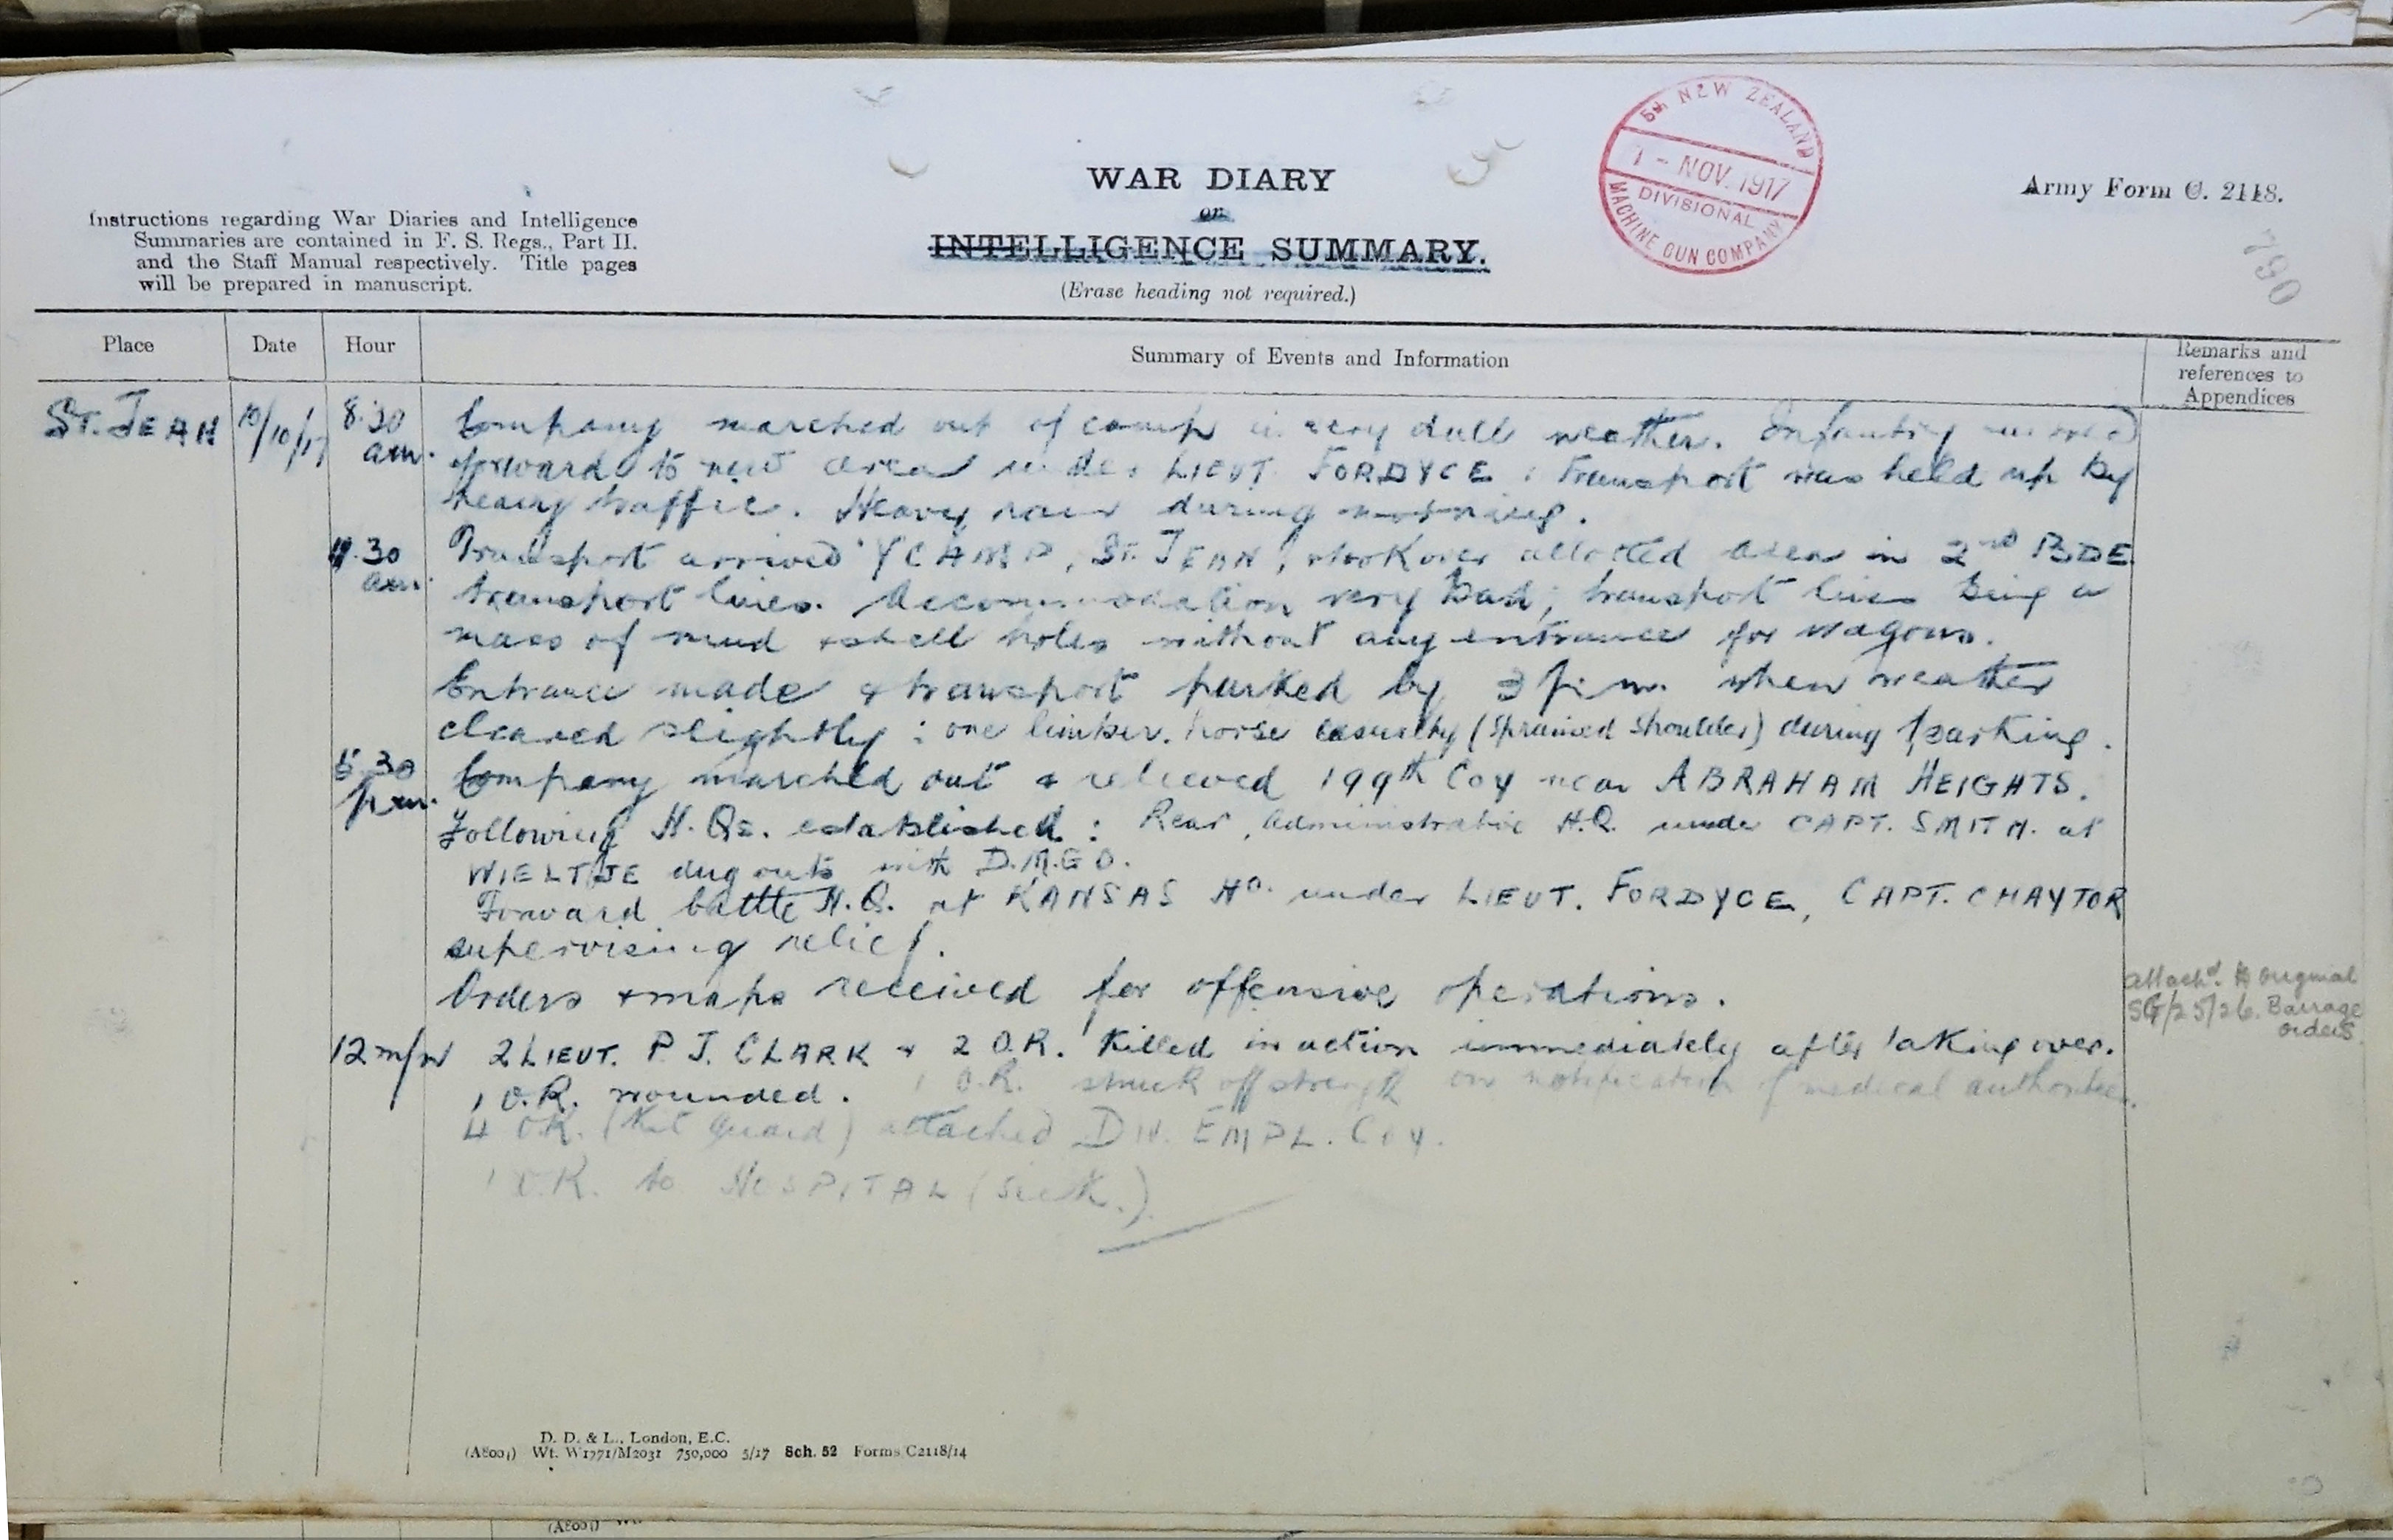 5th NEW ZEALAND
1 - NOV. 1917
DIVISIONAL
MACHINE GUN COMPANY
WAR DIARY
or
INTELLIGENCE SUMMARY.
(Erase heading not required.)
Army Form C. 2118.
790
Instructions regarding War Diaries and Intelligence
Summaries are contained in F. S. Regs., Part II.
and the Staff Manual respectively. Title pages
will be prepared in manuscript.
Place Date Hour Summary of Events and Information Remarks and
references to
Appendices
ST. JEAN 10/10/17 8.30 am. Company marched out of camp in very dull weather. Infantry moved
forward to new area under LIEUT FORDYCE : Transport was held up by
heavy traffic. Heavy rain during morning.
11.30 am. Transport arrived Y CAMP, ST. JEAN, & took over allotted area in 2nd BDE
transport lines. Accommodation very bad, transport lines being a
mass of mud & shell holes without any entrance for wagons.
Entrance made & transport parked by 3 p.m. when weather
cleared slightly : one limber horse casualty (sprained shoulder) during parking.
5.30 pm. Company marched out & relieved 199th Coy near ABRAHAM HEIGHTS.
Following H.Qs. established : Rear, administrative H.Q. under CAPT. SMITH. at
WIELTJE dug outs with D.M.G.O.
Forward battle H.Q. at KANSAS Ho. under LIEUT. FORDYCE, CAPT. CHAYTOR
supervising relief.
Orders & maps received for offensive operations.
attachd. to original
SG/25/26. Barrage
orders.
12 m/n 2 LIEUT. P. J. CLARK & 2 O.R. killed in action immediately after taking over.
1 O.R. wounded. 1 O.R. struck off strength on notification of medical authorities.
4 O.R. (Kit Guard) attached DIV. EMPL. COY.
1 O.R. to HOSPITAL (sick.)
D. D. & L., London, E.C.
(A8001) Wt. W1771/M2031 750,000 5/17 Sch. 52 Forms/C2118/14
(A8001)